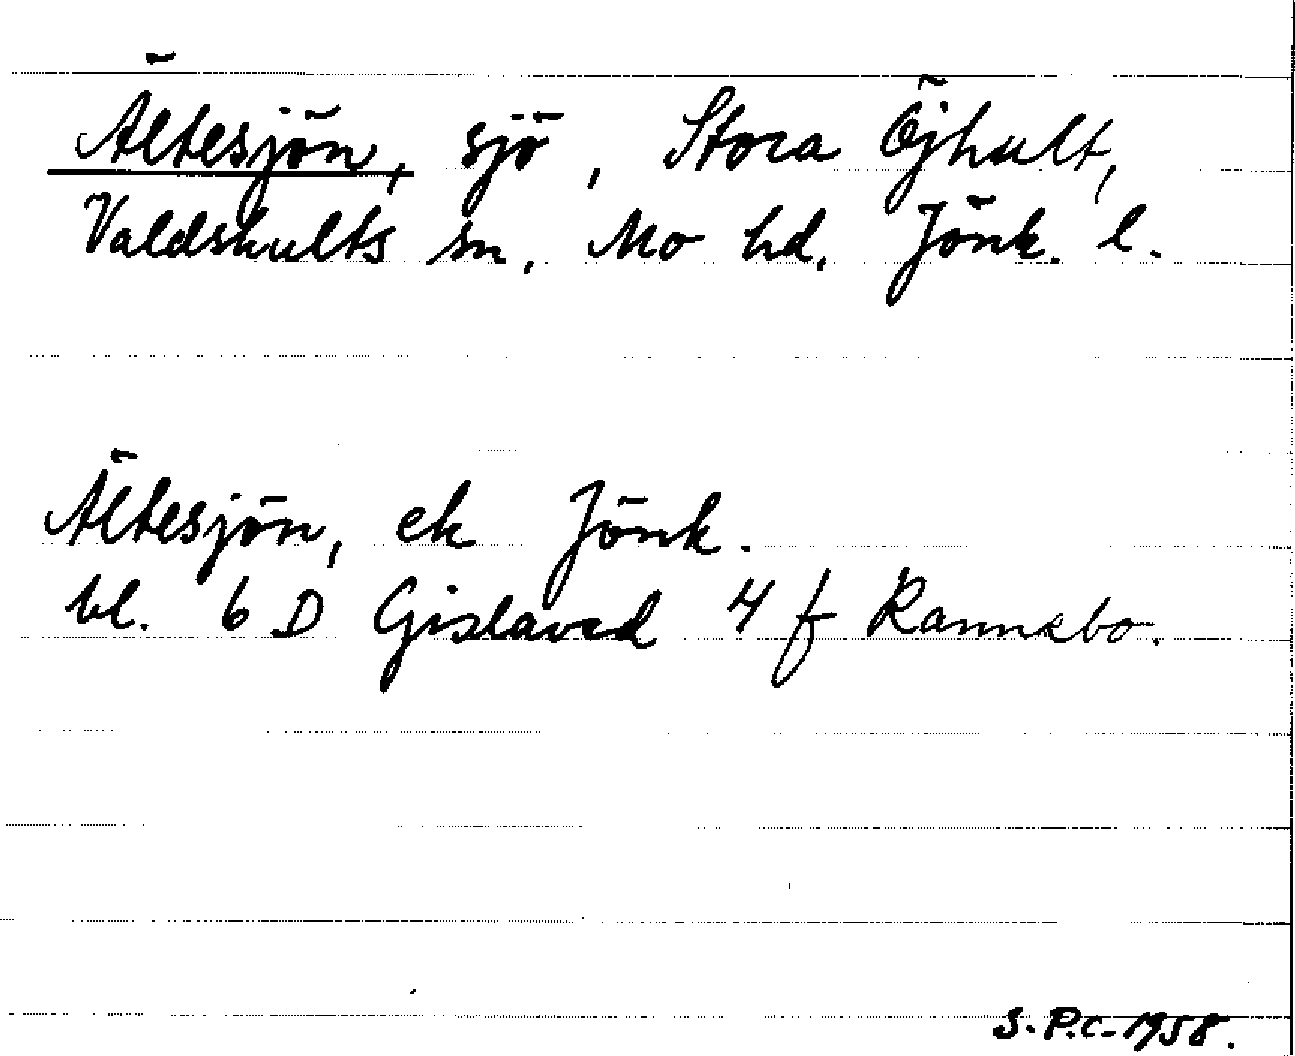 Ältesjön, sjö, Stora Öjhult,
Valdshults sn, Mo hd, Jönk. l.
Ältesjön, ek Jönk.
bl. 6 D Gislaved 4 f Rannebo.
S.P.C-1958.